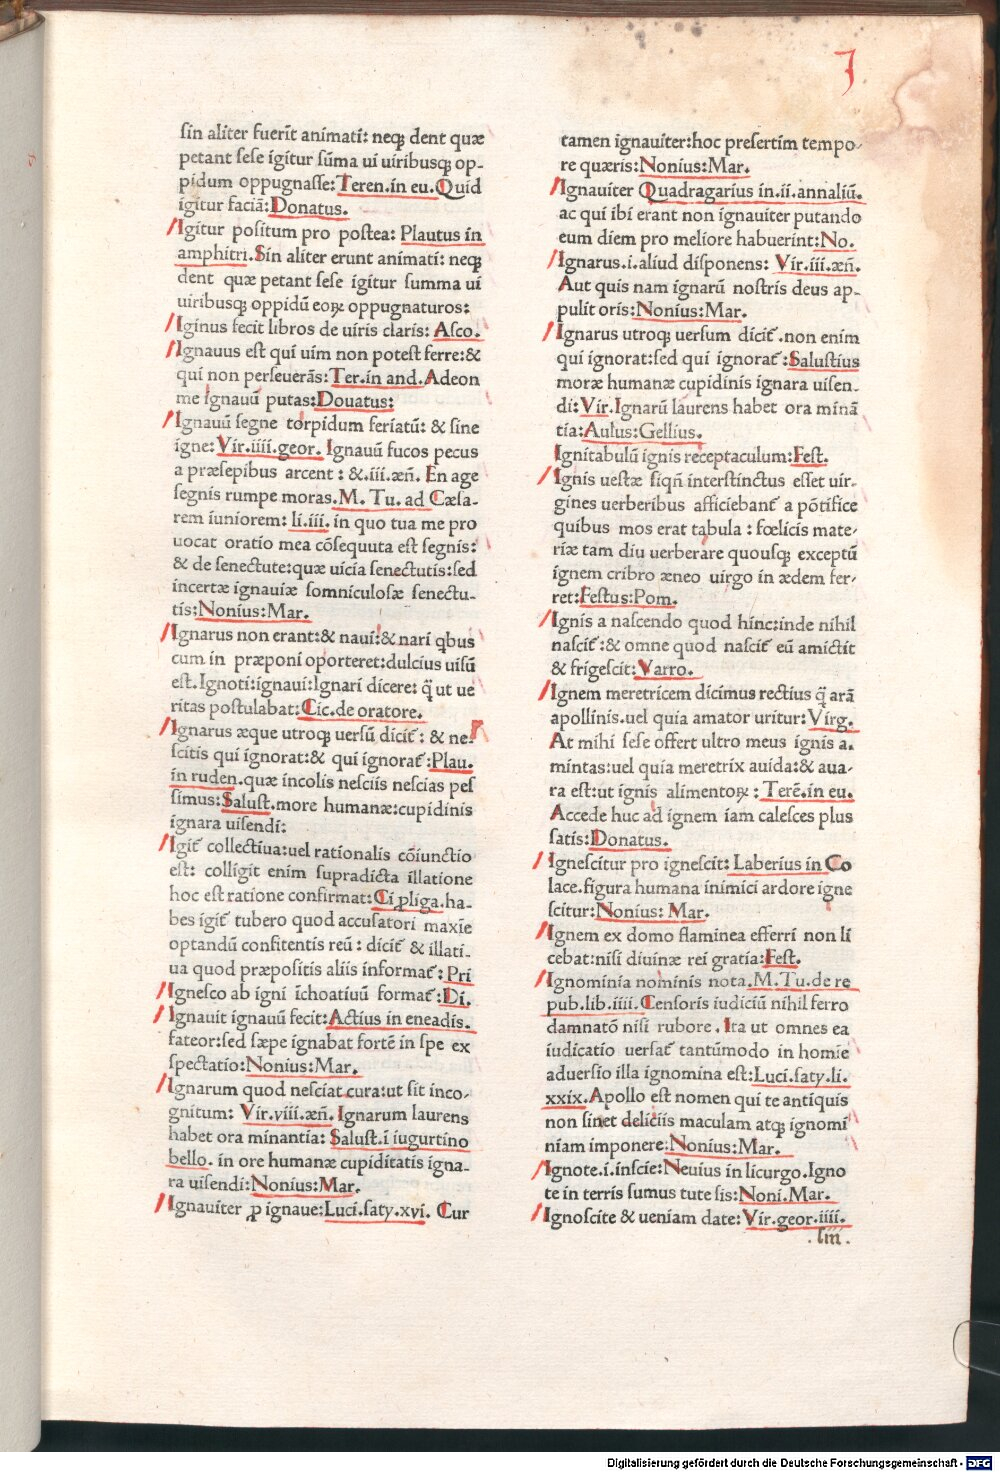 I
sin aliter fuerīt animati: neqꝫ dent quæ
petant sese igitur sūma ui uiribusqꝫ op-
pidum oppugnasse: Teren.in eu.Quid
igitur faciā: Donatus.
Igitur positum pro postea: Plautus in
amphitri.Sin aliter erunt animati: neqꝫ
dent quæ petant sese igitur summa ui
uiribusqꝫ oppidū eoꝝ oppugnaturos:
Iginus fecit libros de uiris claris: Asco.
Ignauus est qui uim non potest ferre:&
qui non perseuerās: Ter.in and.Adeon
me ignauū putas: Douatus:
Ignauū segne torpidum feriatū: & sine
igne: Vir.iiii.geor. Ignauū fucos pecus
a præsepibus arcent: &.iii.æn̄. En age
segnis rumpe moras.M. Tu. ad Cæsa-
rem iuniorem: li.iii. in quo tua me pro
uocat oratio mea cōsequuta est segnis:
& de senectute:quæ uicia senectutis:sed
incertæ ignauiæ somniculosæ senectu-
tis: Nonius: Mar.
Ignarus non erant:& naui:& nari qbus
cum in præponi oporteret:dulcius uisū
est.Ignoti:ignaui:Ignari dicere: q̄ ut ue
ritas postulabat: Cic.de oratore.
Ignarus æque utroqꝫ uersū dicit̄: & ne-
scitis qui ignorat:& qui ignorat̄: Plau.
in ruden.quæ incolis nesciis nescias pes
simus: Salust.more humanæ:cupidinis
ignara uisendi:
Igit̄ collectiua:uel rationalis cōiunctio
est: colligit enim supradicta illatione
hoc est ratione confirmat: Ci ꝓliga.ha-
bes igit̄ tubero quod accusatori maxīe
optandū confitentis reū: dicit̄ & illati-
ua quod præpositis aliis informat̄: Pri
Ignesco ab igni īchoatiuū format̄: Di.
Ignauit ignauū fecit: Actius in eneadis.
fateor:sed sæpe ignabat fortē in spe ex
spectatio: Nonius: Mar.
Ignarum quod nesciat cura:ut sit inco-
gnitum: Vir.viii.æn̄. Ignarum laurens
habet ora minantia: Salust.i iugurtino
bello. in ore humanæ cupiditatis igna-
ra uisendi: Nonius: Mar.
Ignauiter ꝓ ignaue: Luci.saty.xvi. Cur
tamen ignauiter:hoc presertim tempo-
re quæris: Nonius: Mar.
Ignauiter Quadragarius in.ii.annaliū.
ac qui ibi erant non ignauiter putando
eum diem pro meliore habuerint: No.
Ignarus.i.aliud disponens: Vir.iii.æn̄.
Aut quis nam ignarū nostris deus ap-
pulit oris: Nonius: Mar.
Ignarus utroqꝫ uersum dicit̄.non enim
qui ignorat:sed qui ignorat̄: Salustius
moræ humanæ cupidinis ignara uisen-
di: Vir.Ignarū laurens habet ora minā
tia: Aulus: Gellius.
Ignitabulū ignis receptaculum: Fest.
Ignis uestæ siqn̄ interstinctus esset uir-
gines uerberibus afficiebant̄ a pōtifice
quibus mos erat tabula : fœlicis mate-
riæ tam diu uerberare quousqꝫ exceptū
ignem cribro æneo uirgo in ædem fer-
ret: Festus: Pom.
Ignis a nascendo quod hinc:inde nihil
nascit̄:& omne quod nascit̄ eū amictit
& frigescit: Varro.
Ignem meretricem dicimus rectius q̄ arā
apollinis.uel quia amator uritur: Virg.
At mihi sese offert ultro meus ignis a-
mintas:uel quia meretrix auida:& aua-
ra est:ut ignis alimentoꝝ: Terē.in eu.
Accede huc ad ignem iam calesces plus
satis: Donatus.
Ignescitur pro ignescit: Laberius in Co
lace.figura humana inimici ardore igne
scitur: Nonius: Mar.
Ignem ex domo flaminea efferri non li
cebat:nisi diuinæ rei gratia: Fest.
Ignominia nominis nota.M.Tu.de re
pub.lib.iiii.Censoris iudiciū nihil ferro
damnatō nisi rubore . Ita ut omnes ea
iudicatio uersat̄ tantūmodo in homīe
aduersio illa ignomina est: Luci.saty.li.
xxix.Apollo est nomen qui te antiquis
non sinet deliciis maculam atqꝫ ignomi
niam imponere: Nonius: Mar.
Ignote.i.inscie: Neuius in licurgo.Igno
te in terris sumus tute sis: Noni.Mar.
Ignoscite & ueniam date: Vir.geor.iiii.
Digitalisierung gefördert durch die Deutsche Forschungsgemeinschaft - DFG